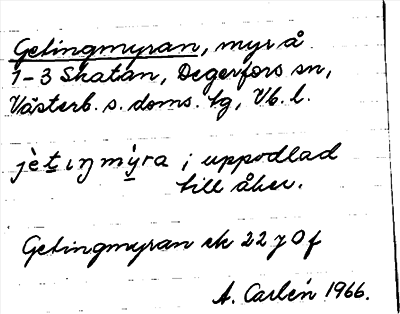 Getingmyran, myr å
1-3 Skatan, Degerfors sn,
Västerb. s. doms. tg, Vb. l.
jètiŋmy̌ra ; uppodlad
till åker.
Getingmyran ek 22 7 0 f
A. Carlén 1966.